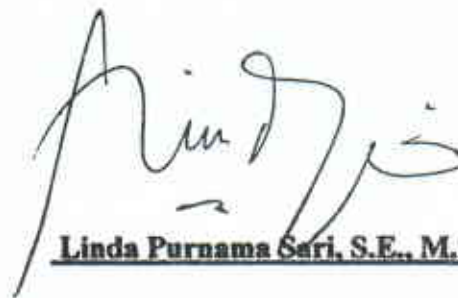 Linda Purnama Sari, S.E., M.